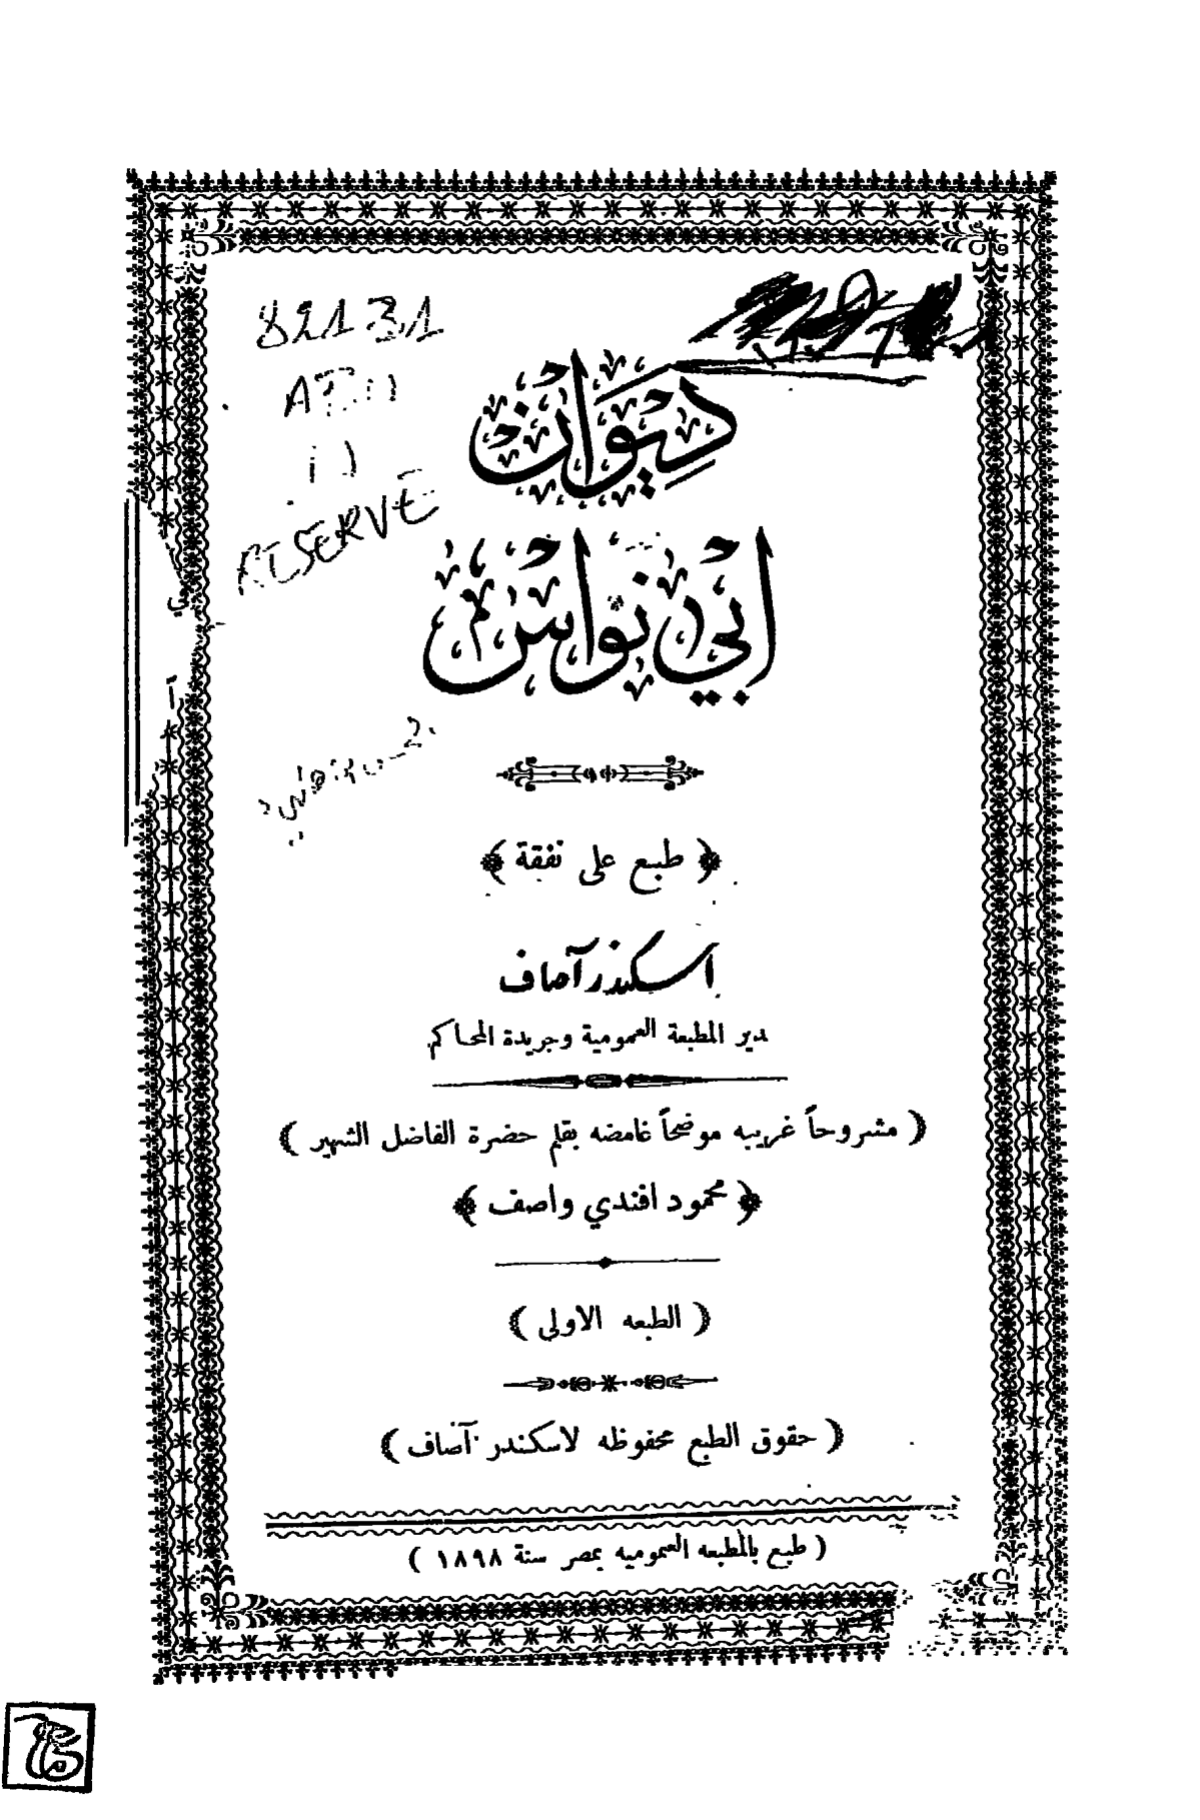 82131
RESERVE
ديوان
ابي نواس
﴿ طبع على نفقة ﴾
اسكندر آصاف
مدير المطبعة العمومية وجريدة المحاكم
( مشروحاً غريبه موضحاً غامضه بقلم حضرة الفاضل الشهير )
﴿ محمود افندي واصف ﴾
( الطبعه الاولى )
( حقوق الطبع محفوظه لاسكندر آصاف )
( طبع بالمطبعه العموميه بمصر سنة ١٨٩٨ )